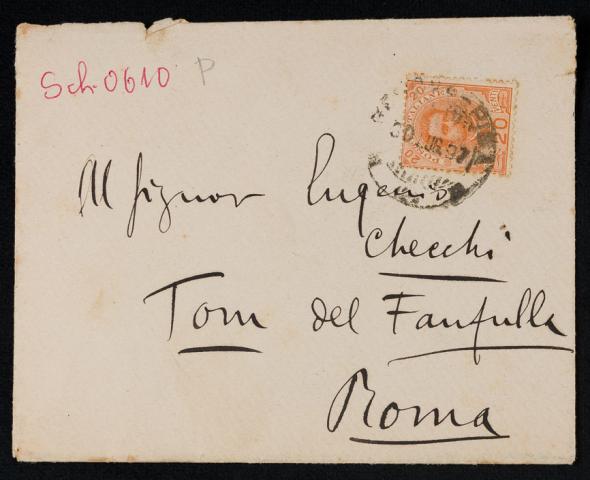 Sch-0610 P
Al Signor Eugenio
Checchi
Tom del Fanfulla
Roma
20
20
20